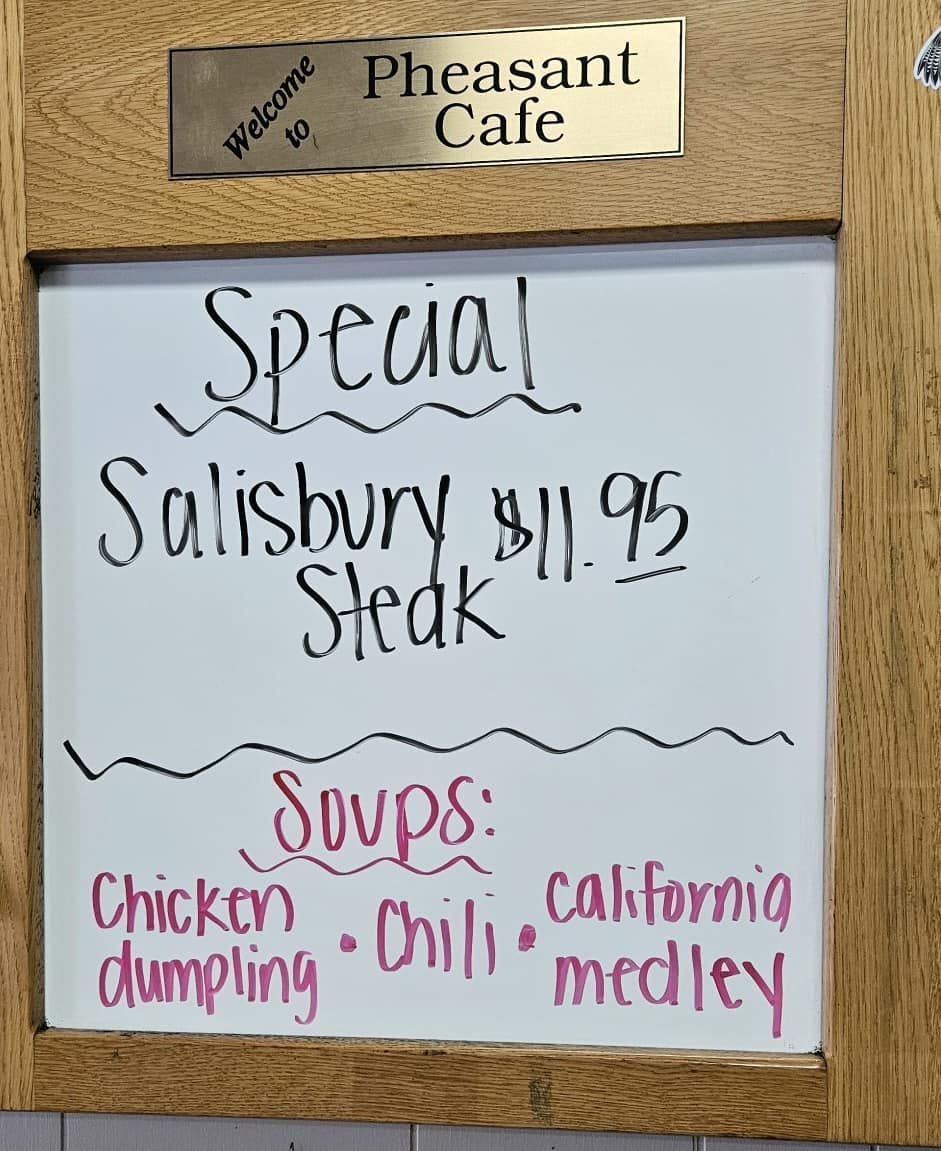 Welcome to Pheasant Cafe
Special
Salisbury $11.95
Steak
Soups:
Chicken dumpling • Chili • California medley